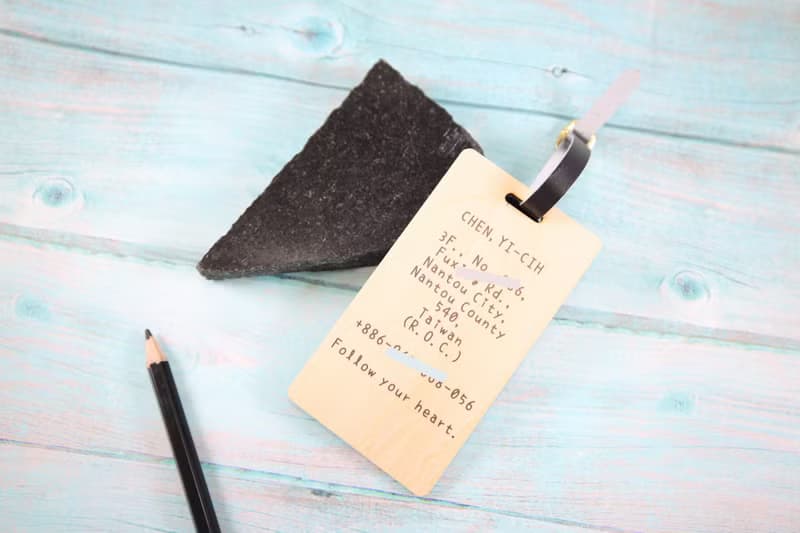 CHEN, YI-CIH
3F., No. 6,
Rd.,
Nantou City,
Nantou County
540,
Taiwan
(R.O.C.)
+886- -056
Follow your heart.